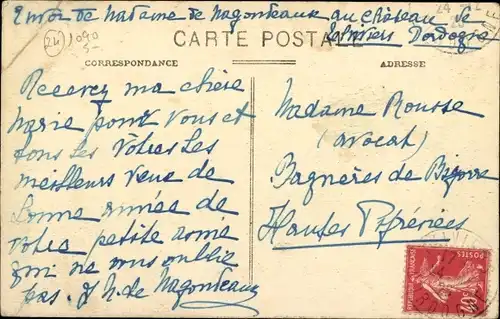 Envoi de Madame de Nagonteaux au château de
Salviers Dordogne
24
1090
5-
CARTE POSTALE
CORRESPONDANCE
ADRESSE
Recevez ma chère
Marie pour vous et
tous les vôtres les
meilleurs vœux de
bonne année de
votre petite amie
qui ne vous oublie
pas.
Madame Rousse
(avocat)
Bagnères de Bigorre
Hautes Pyrénées
POSTES